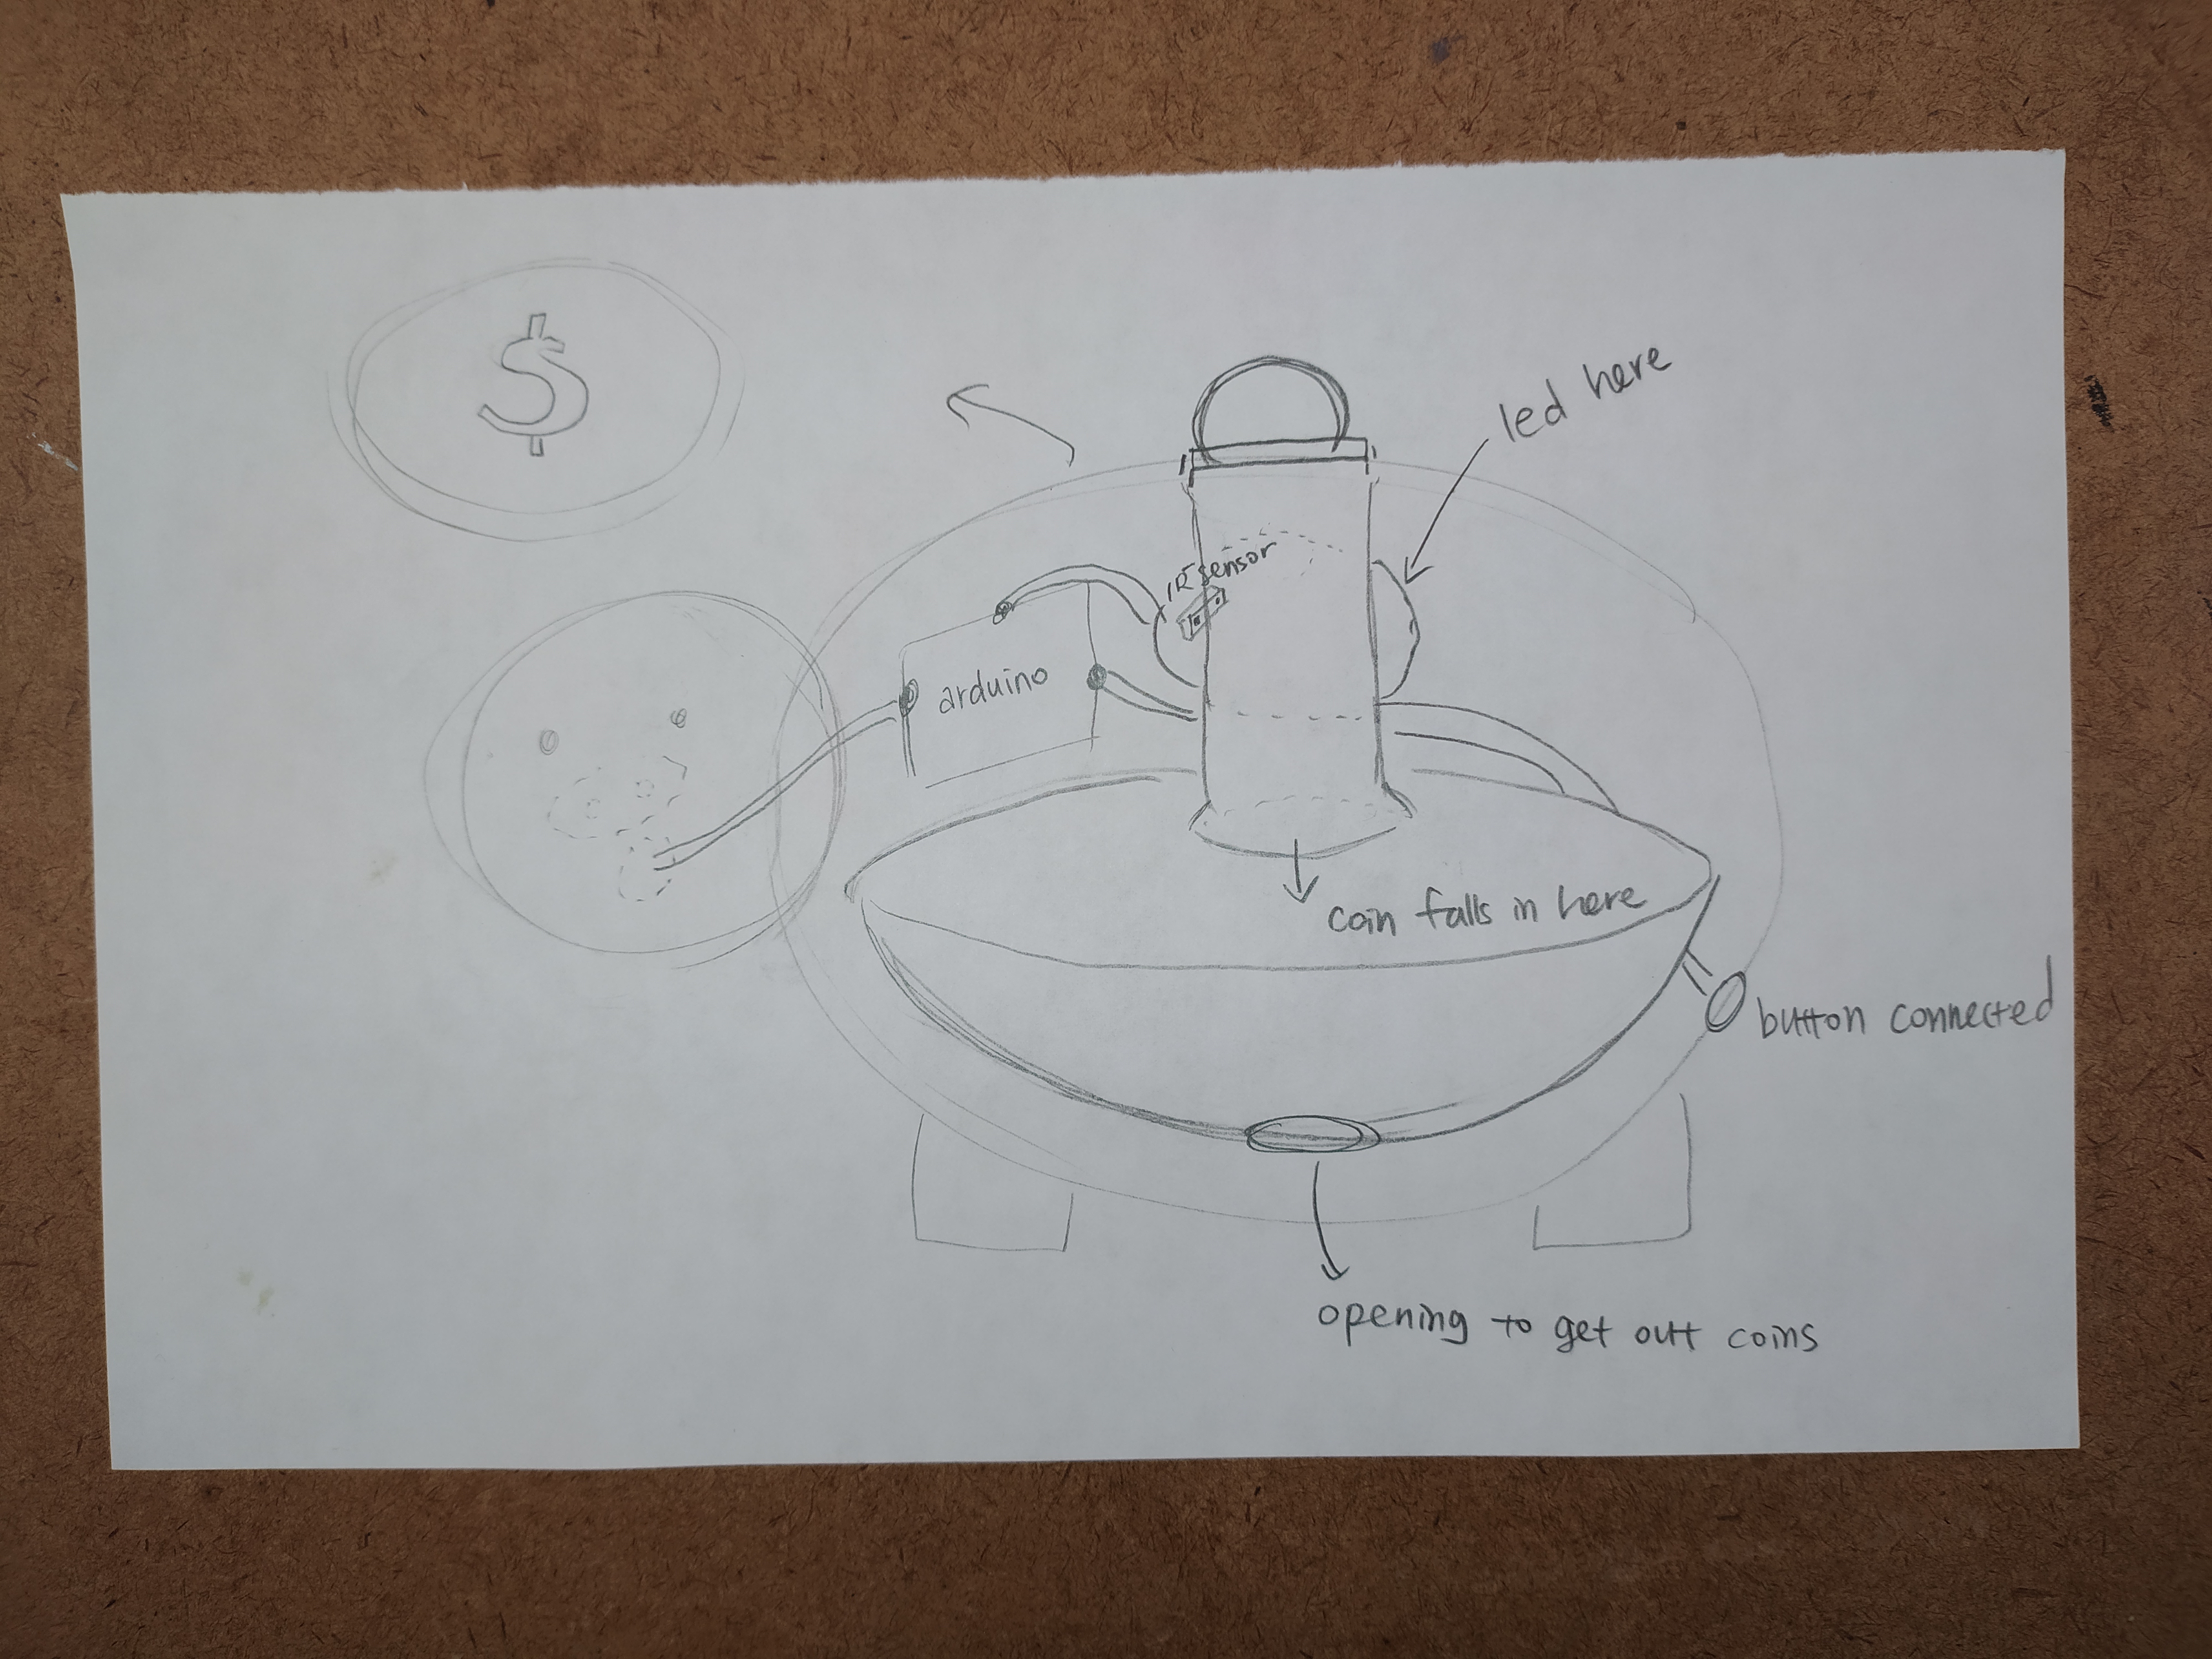 $
led here
IR sensor
arduino
coin falls in here
button connected
opening to get out coins